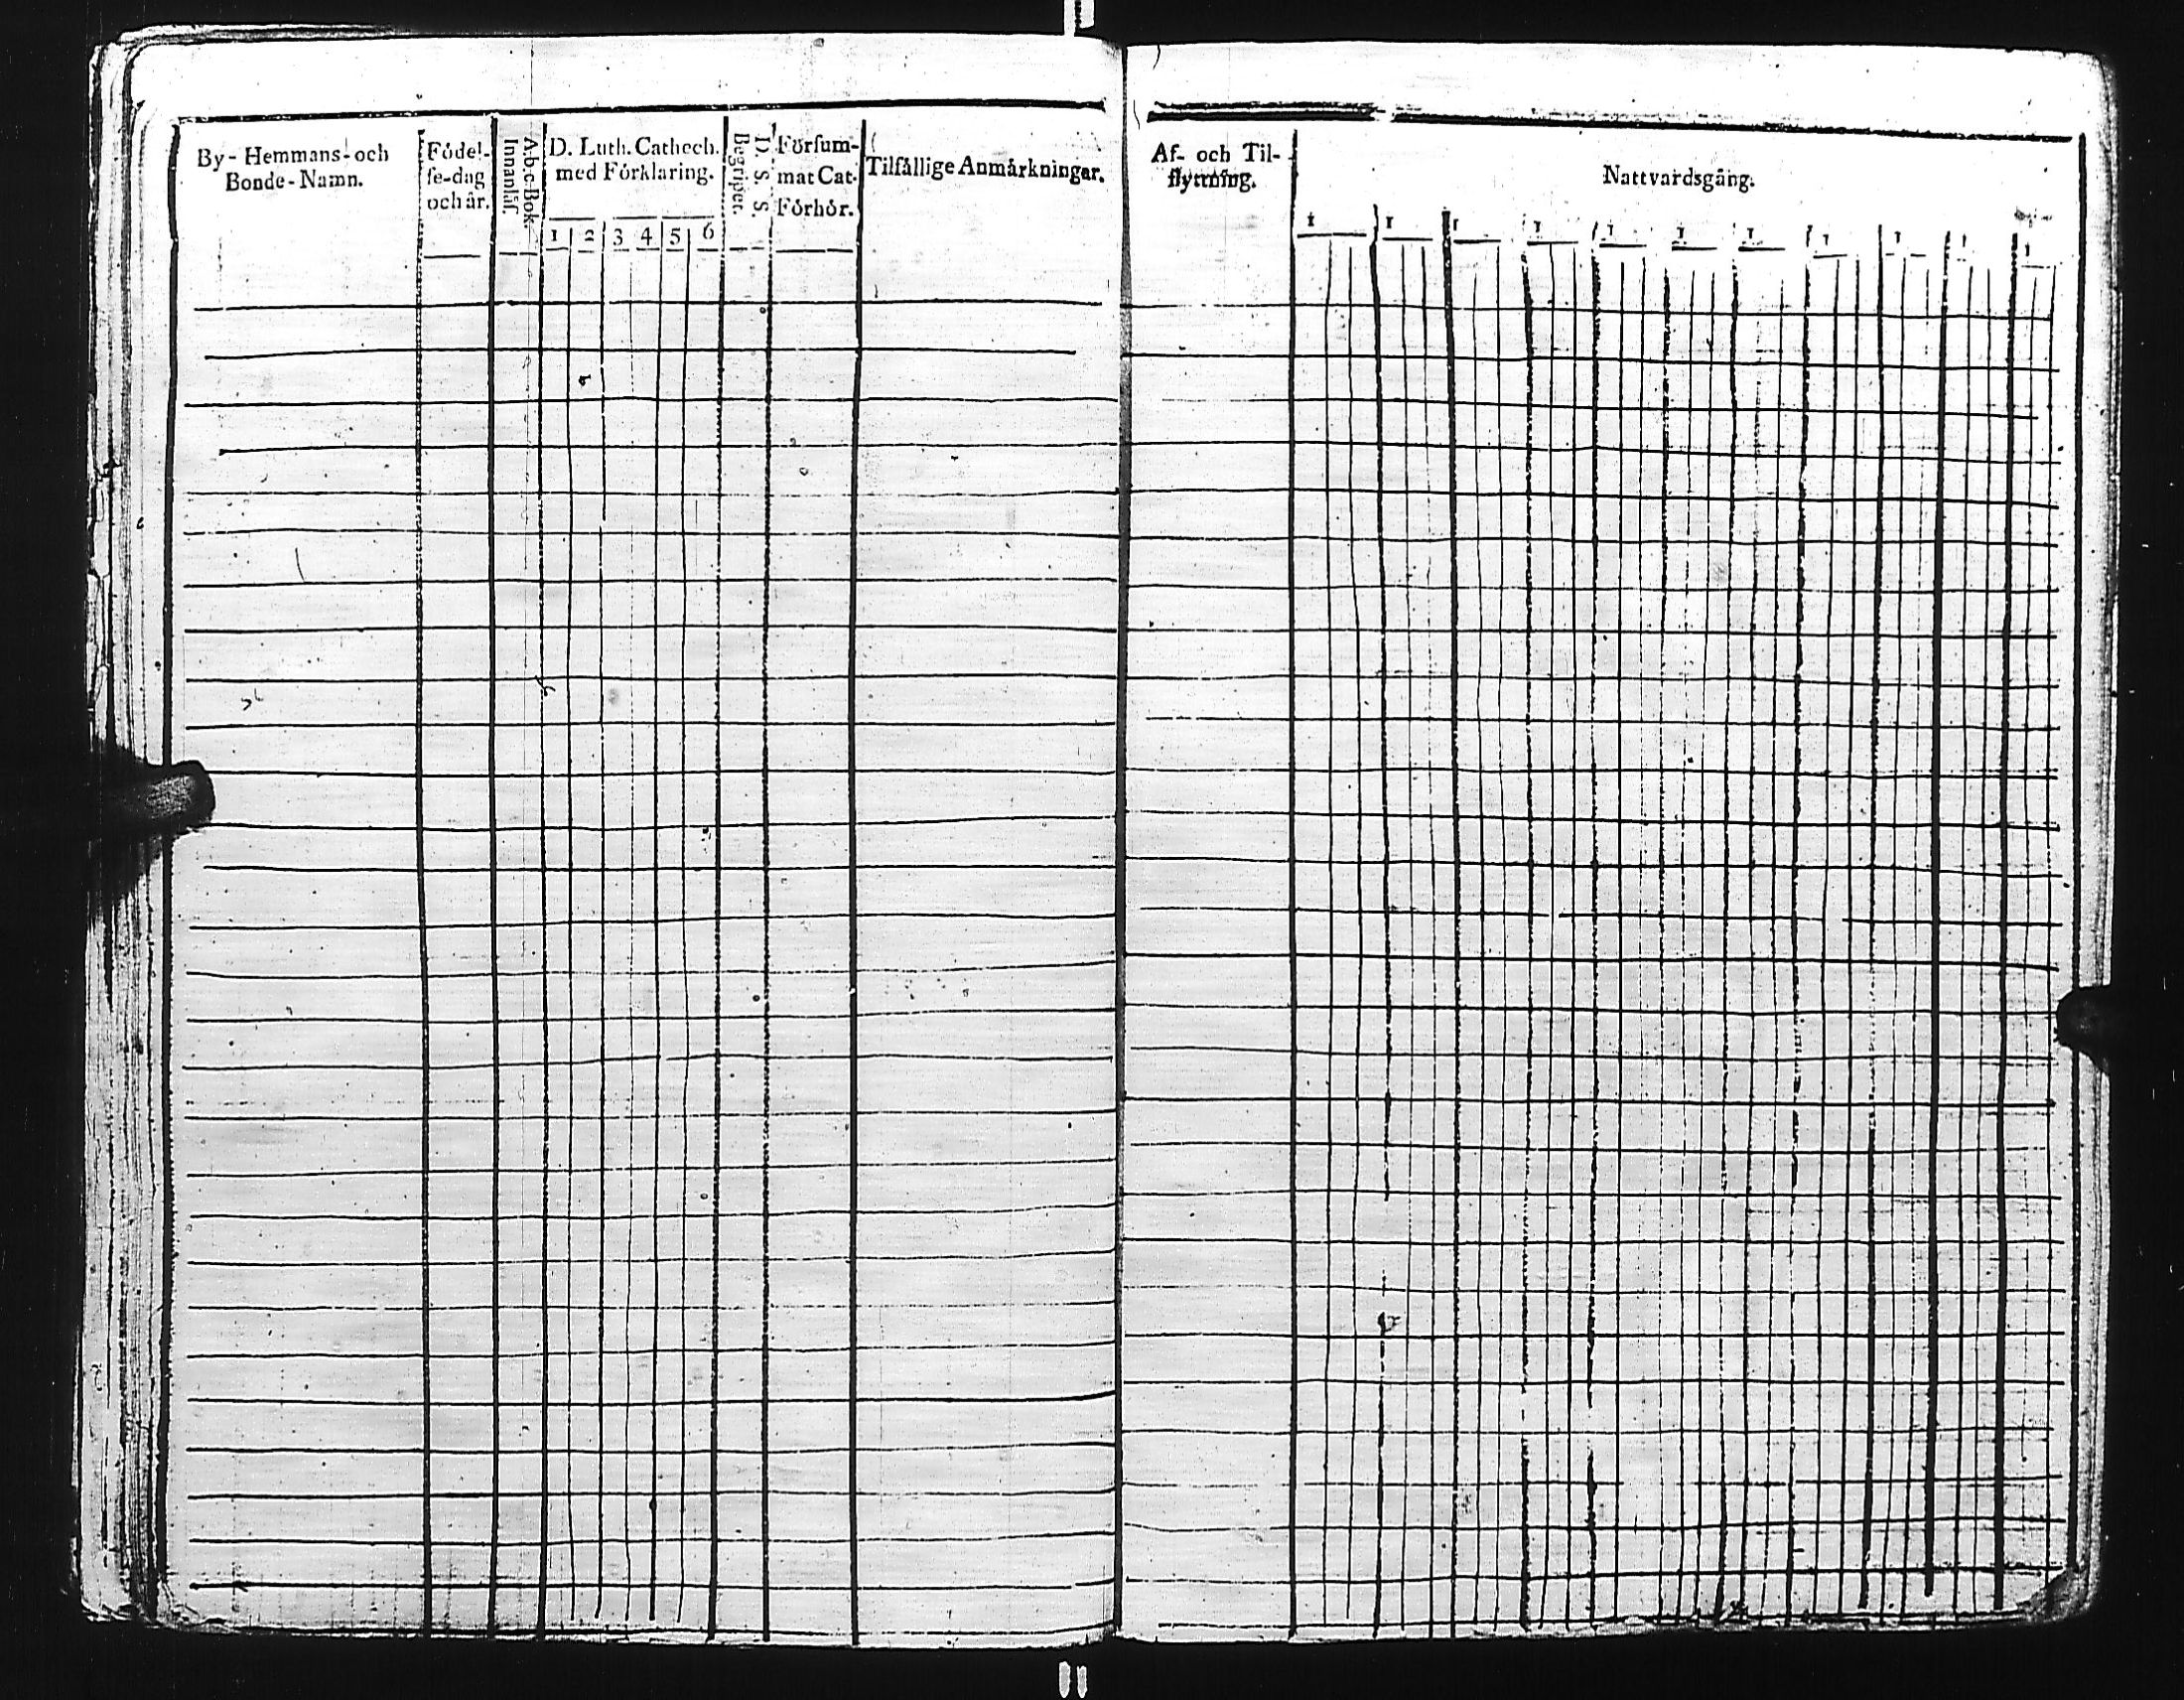 By- Hemmans- och
Bonde-Namn.
Födel-
se-dag
och år.
A.b.c.Bok.
Innanläs.
D. Luth. Cathech.
med Förklaring.
1 2 3 4 5 6
D. S. S.
Begripet.
Försum-
mat Cat.
Förhör.
Tilfällige Anmärkningar.
Af- och Til-
flyttning.
Nattvardsgång.
1 1 1 1 1 1 1 1 1 1 1